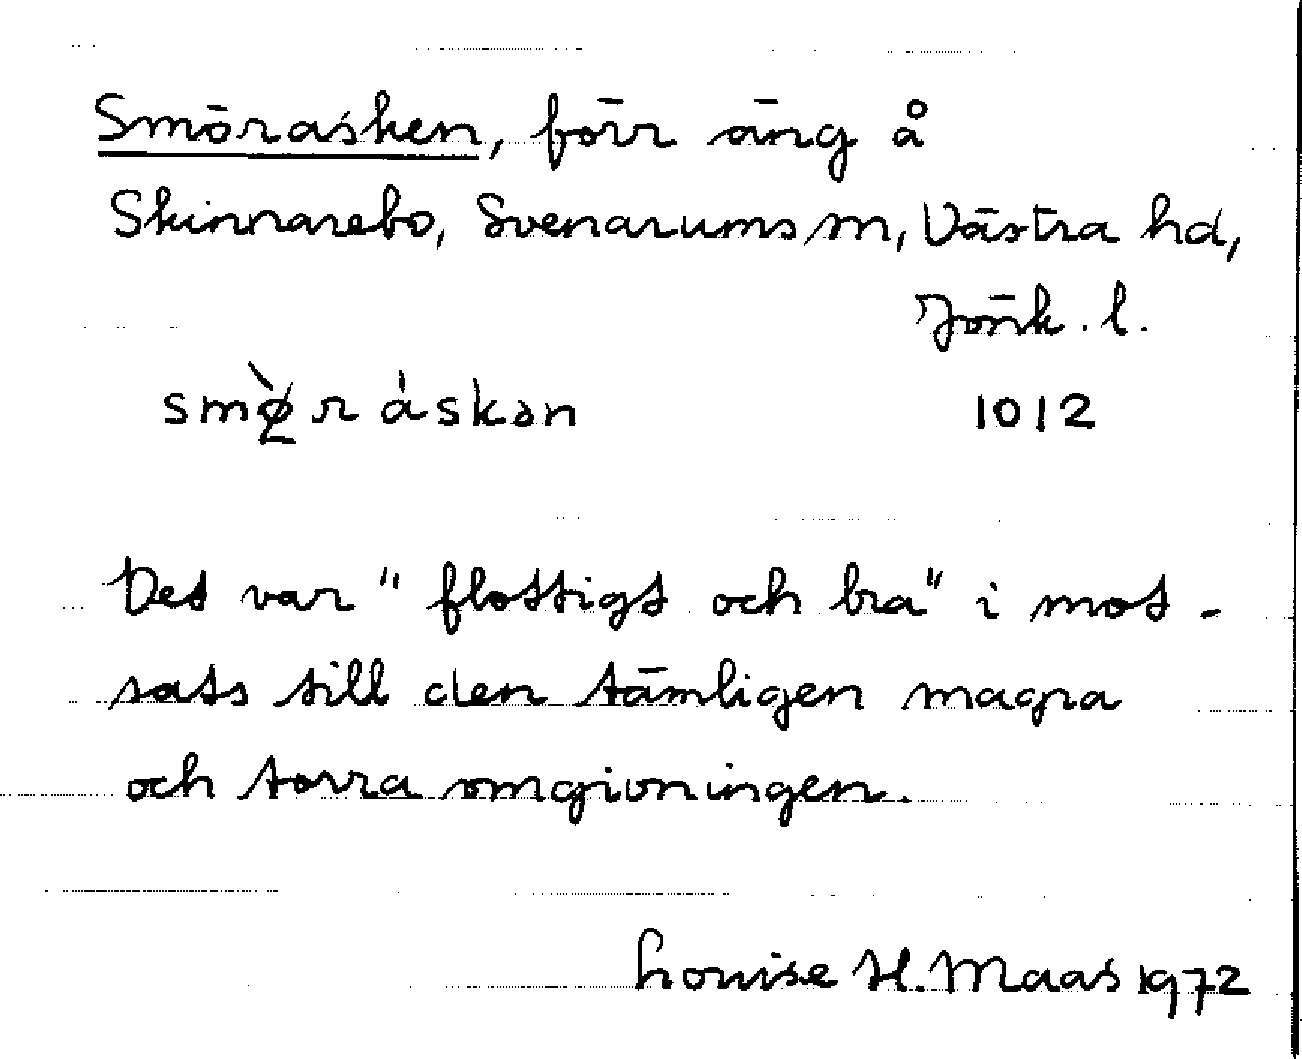 Smörasken, förr äng å
Skinnarebo, Svenarums sn, Västra hd,
Jönk. l.
smø̀ráskən 1012
Det var "flottigt och bra" i mot-
sats till den tämligen magra
och torra omgivningen.
Louise H. Maas 1972